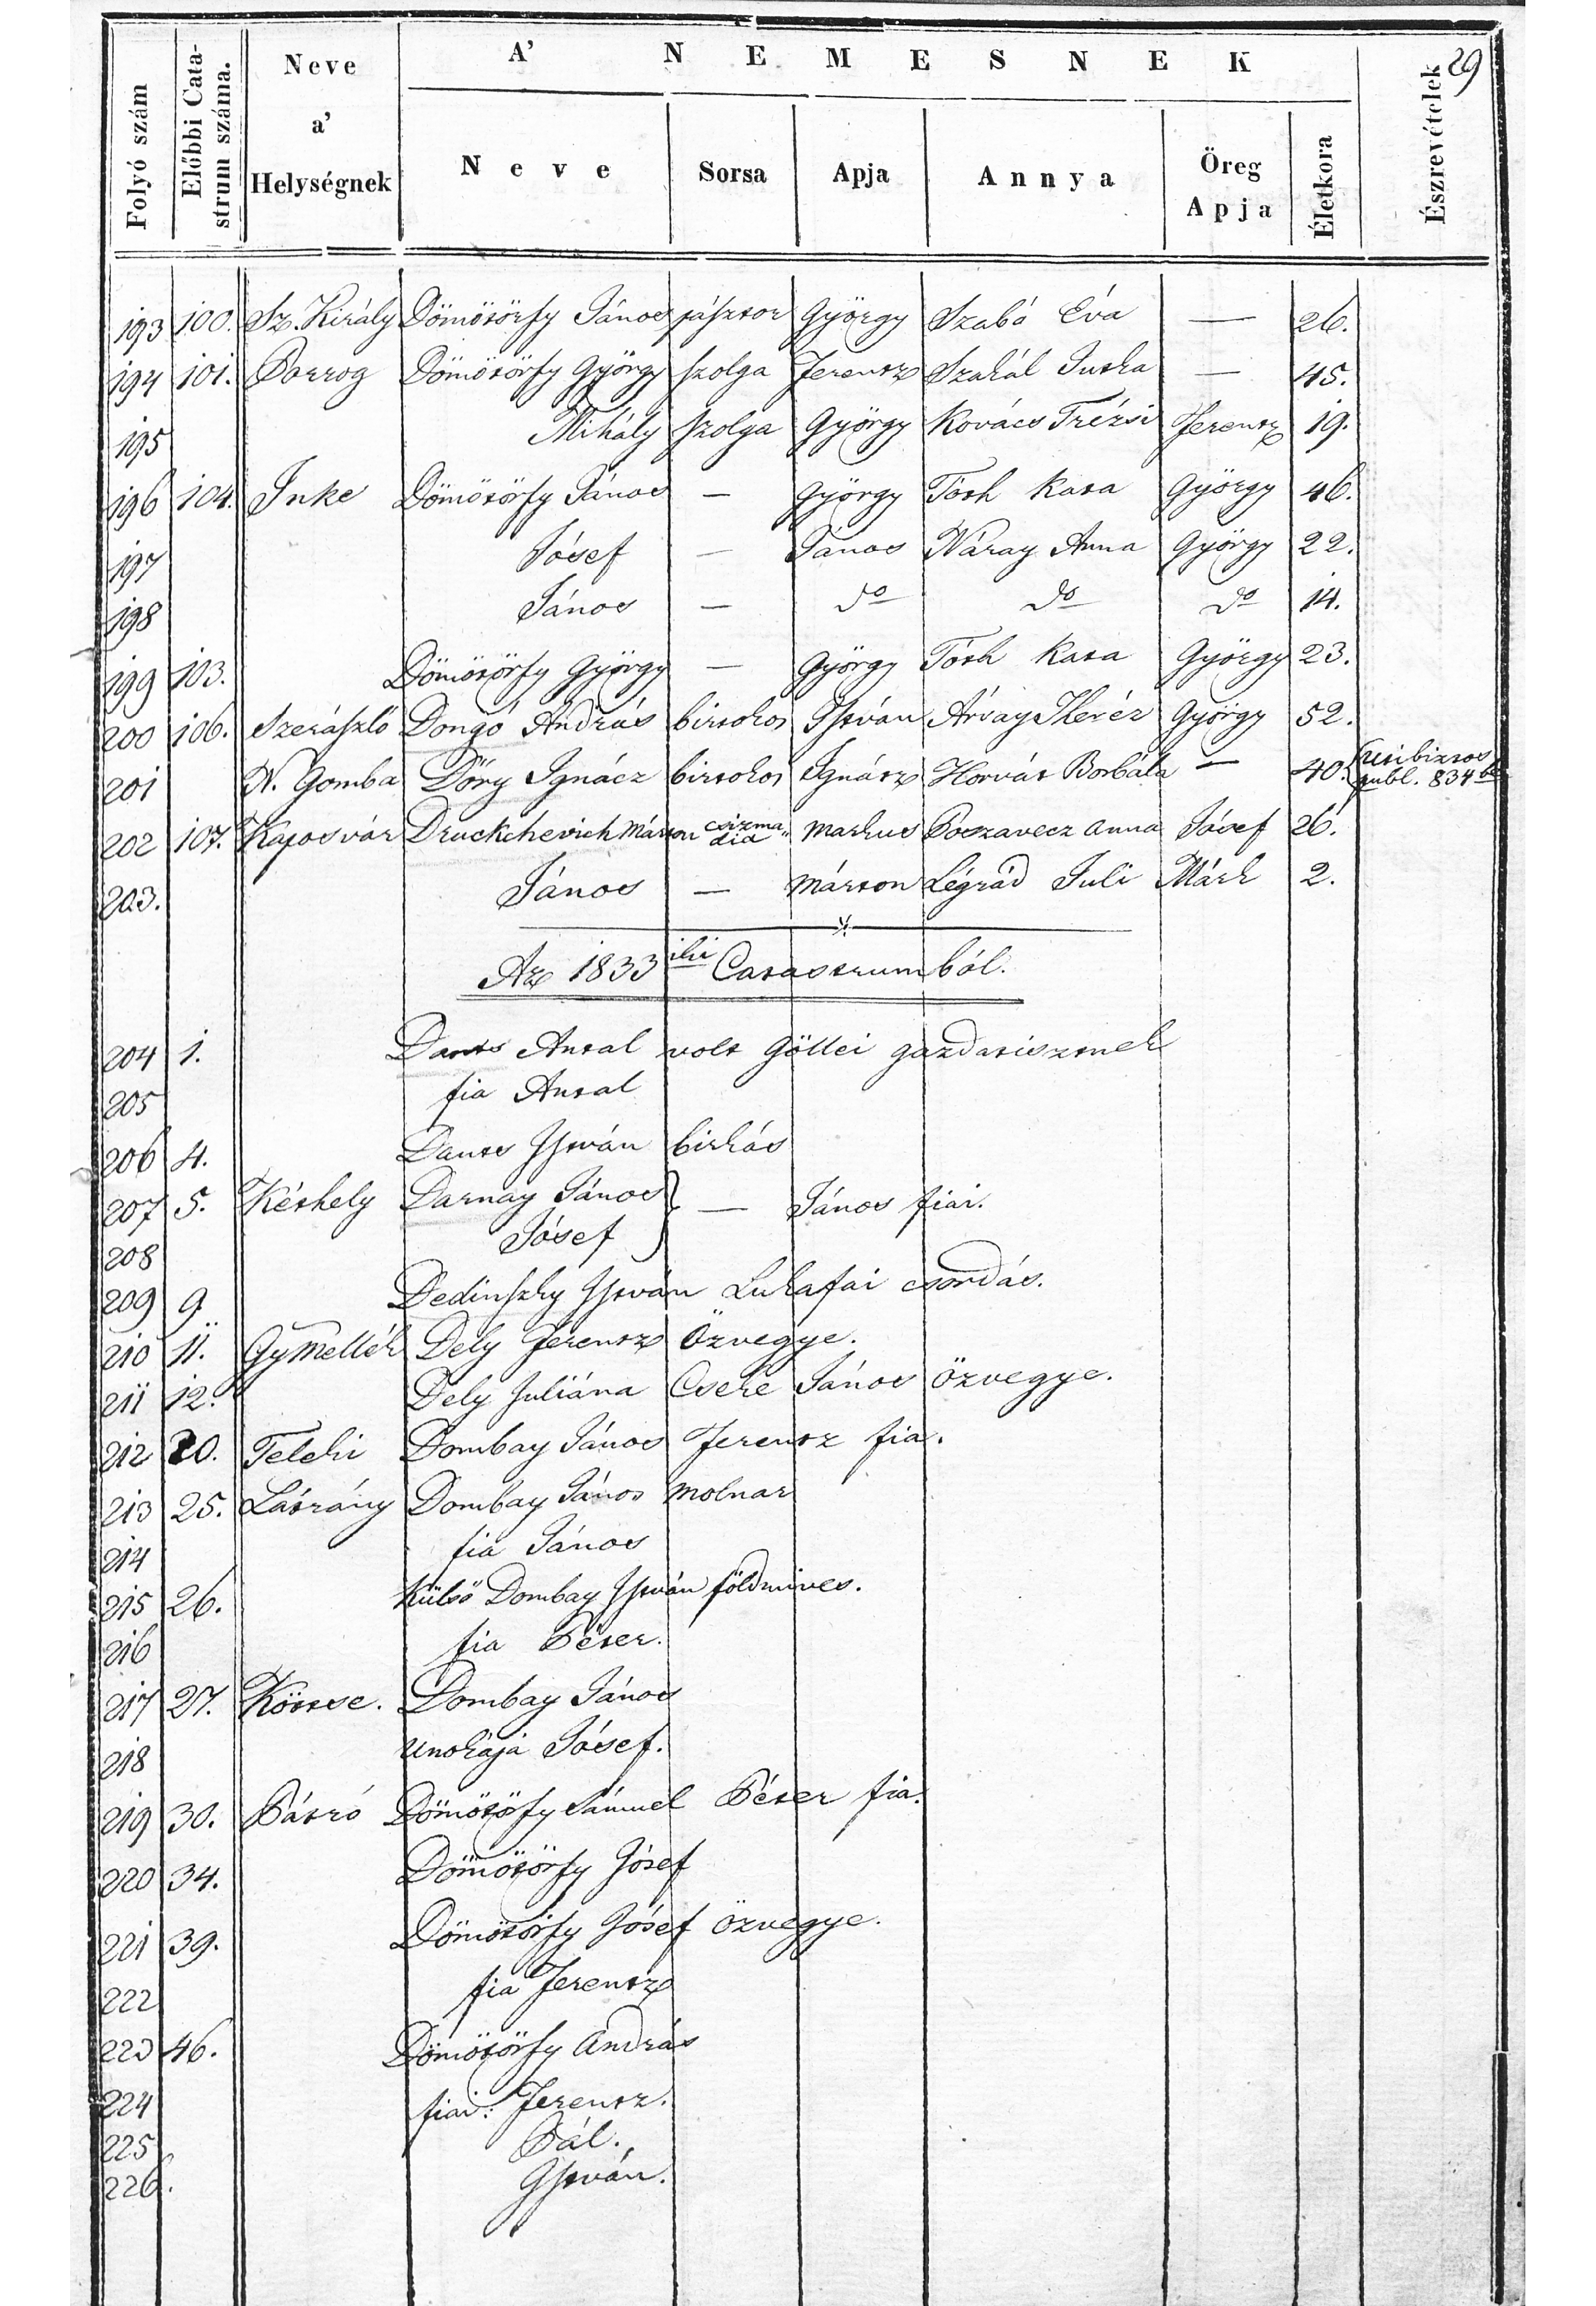 29
Folyó szám
Előbbi Catastrum száma.
Neve a' Helységnek
A' NEMESNEK
Neve
Sorsa
Apja
Annya
Öreg Apja
Életkora
Észrevételek
193 100. Sz. Király Dömötörfy János pásztor György Szabó Éva — 26.
194 101. Porrog Dömötörfy György szolga Ferentz Szakál Jutka — 45.
195 Mihály szolga György Kovács Trézsi Ferentz 19.
196 104. Inke Dömötörfy János — György Tóth Kata György 46.
197 Jósef — János Váray Anna György 22.
198 János — do do do 14.
199 103. Dömötörfy György — György Tóth Kata György 23.
200 106. Szerászló Dongó András birtokos István Árvay Theréz György 52.
201 N. Gomba Dőry Ignácz birtokos Ignátz Horvát Borbála — 40. publ. 834
202 107. Kaposvár Druckchevich Márton csizma„dia Markus Poszavecz Anna Jósef 26.
203. János — Márton Légrád Juli Márk 2.
Az 1833iki Catastrumból.
204 1. Dants Antal volt Göllei gazdatisztnek
205 fia Antal
206 4. Dants István birkás
207 5. Kéthely Darnay János } — János fiai.
208 Jósef
209 9 Dedinszky István Lukafai csordás.
210 11. Gymellék Dely Ferentz Özvegye.
211 12. Dely Juliána Cseke János özvegye.
212 20. Teleki Dombay János Ferentz fia.
213 25. Látrány Dombay János Molnar
214 fia János
215 26. Külső Dombay István földmives.
216 fia Péter.
217 27. Köttse. Dombay János
218 Unokája Jósef.
219 30. Pátró Dömötöfy Sámuel Péter fia.
220 34. Dömötörfy Jósef
221 39. Dömötörfy Jósef özvegye.
222 fia Ferentz
223 46. Dömötörfy András
224 fiai: Ferentz.
225 Pál.
226. István.